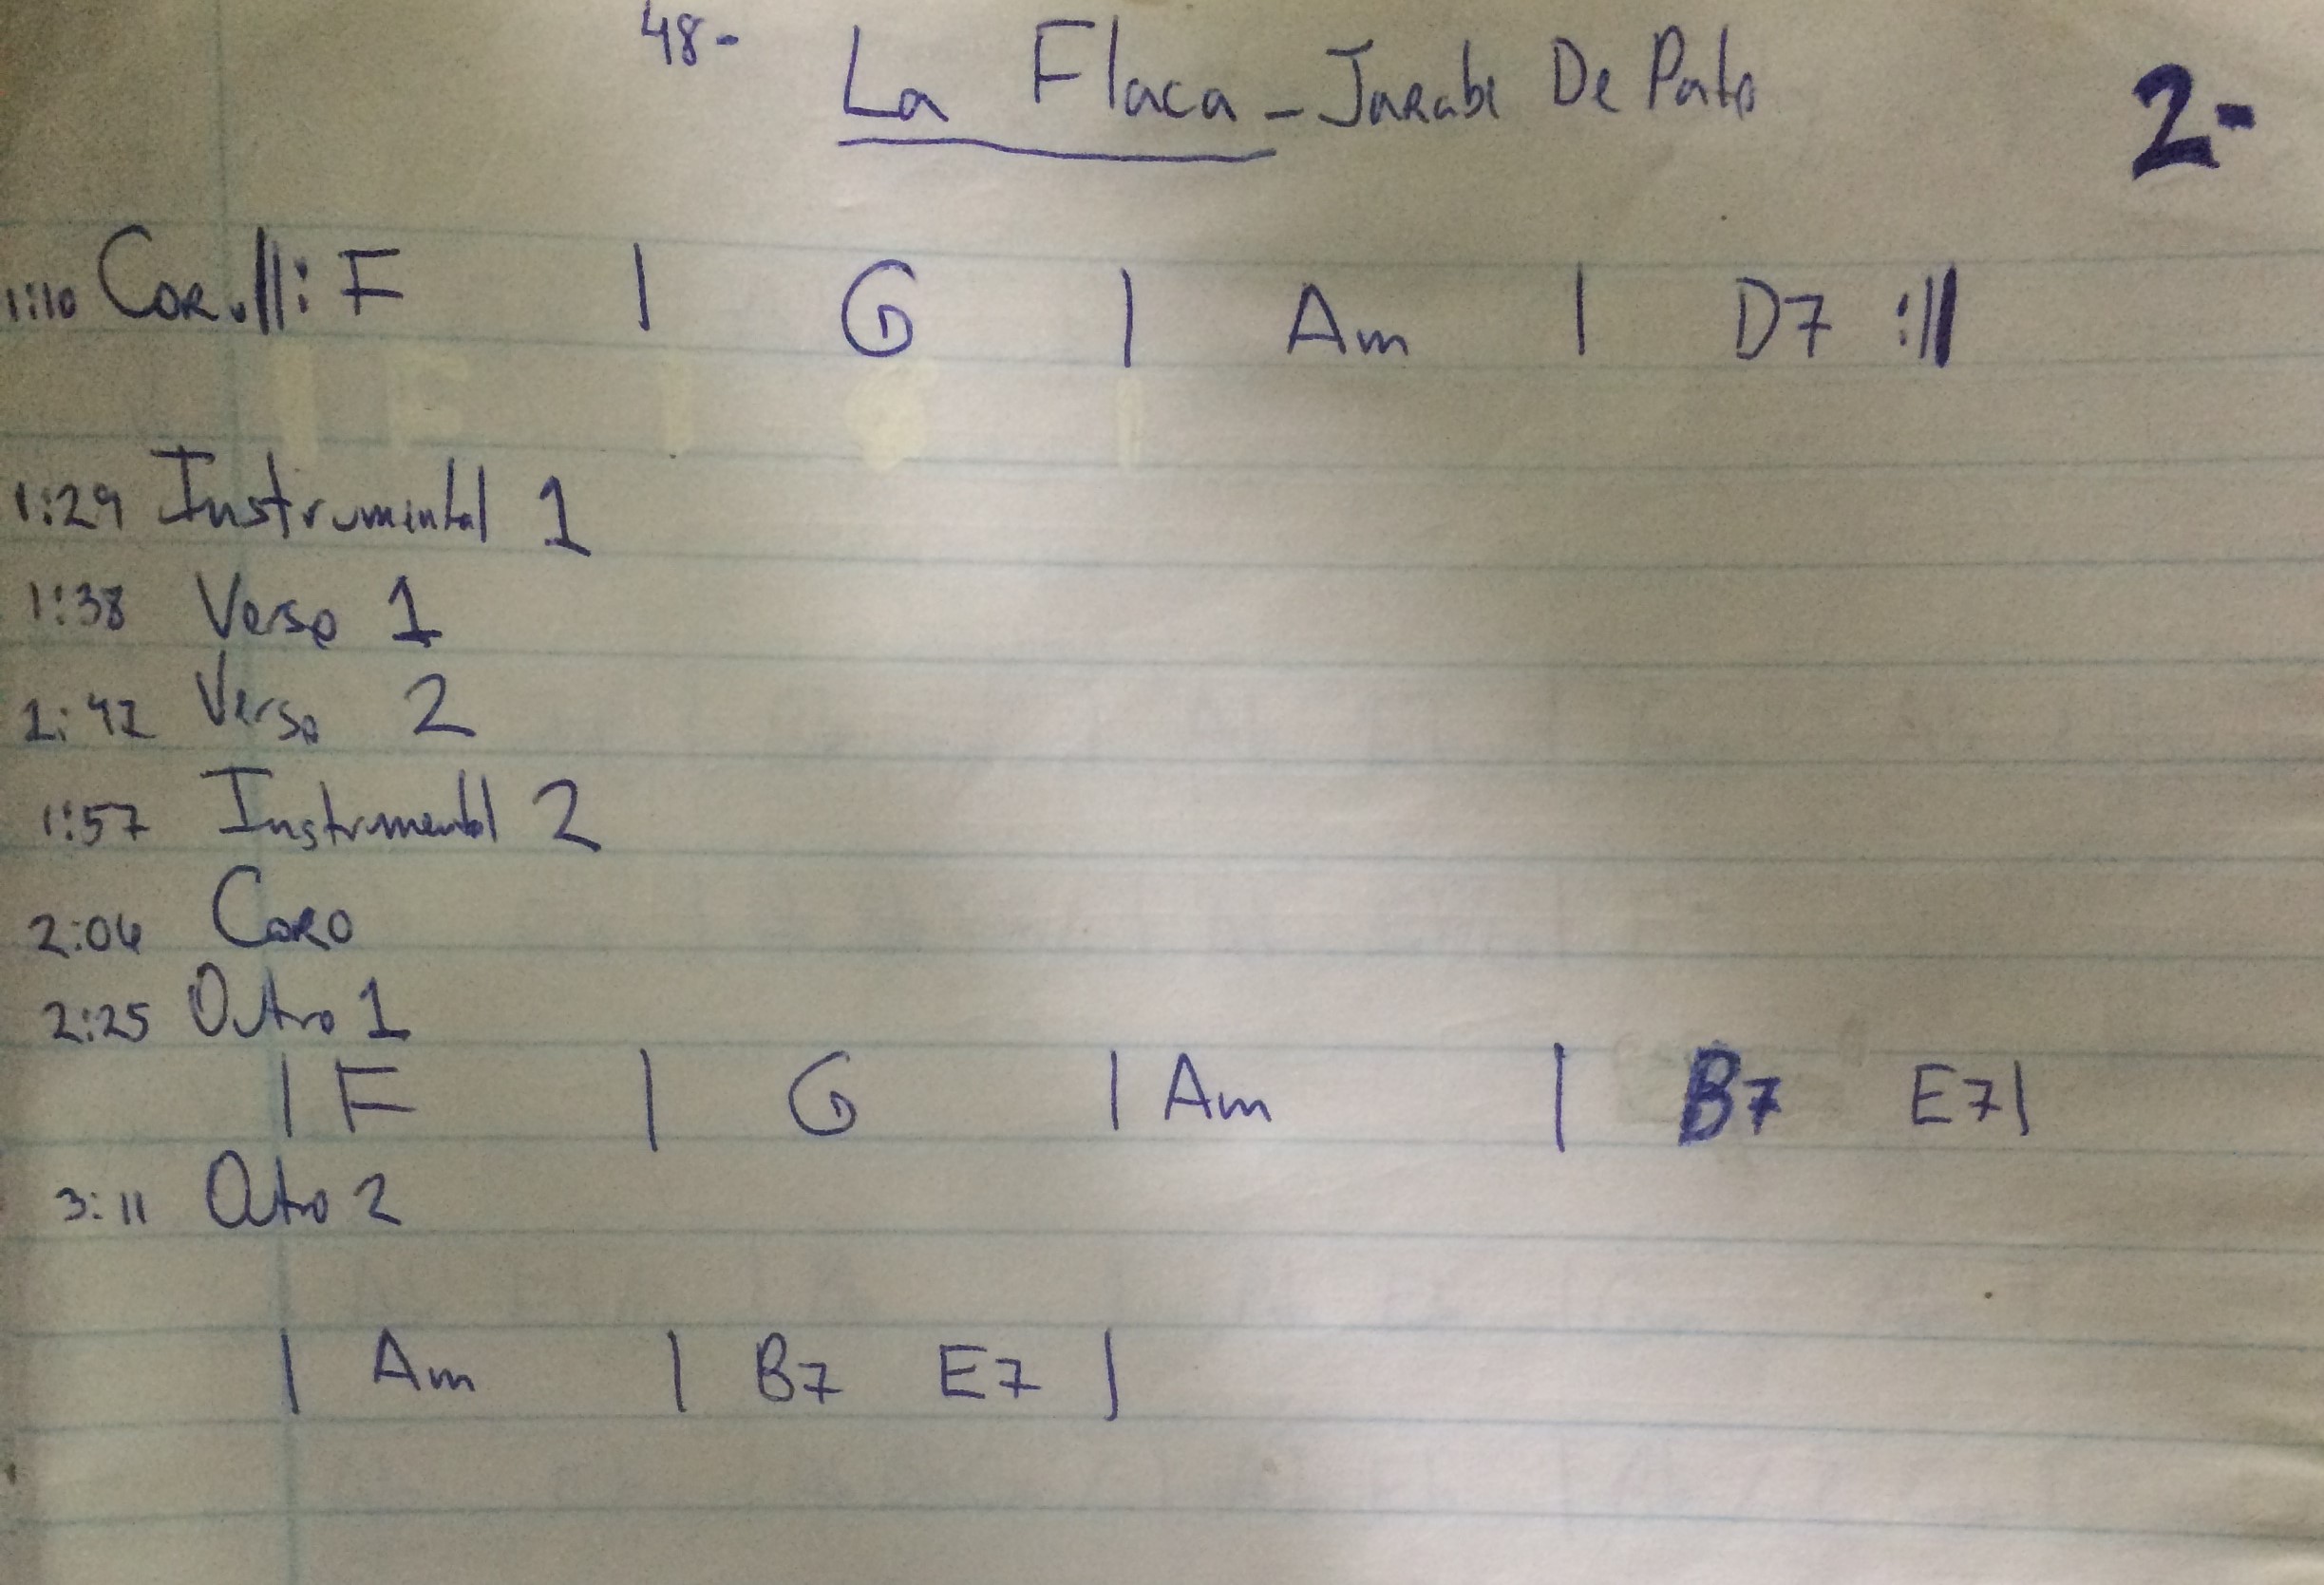 48- La Flaca - Jarabe De Pato
2-
1:10 Coro ||: F | G | Am | D7 :||
1:29 Instrumental 1
1:38 Verso 1
Verso 2
1:57 Instrumental 2
2:04 Coro
2:25 Outro 1
| F | G | Am | B7 E7 |
3:11 Outro 2
| Am | B7 E7 |